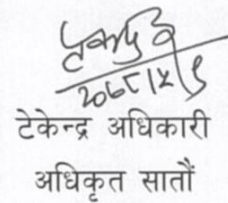 २०७८।५।९
टेकेन्द्र अधिकारी
अधिकृत सातौं